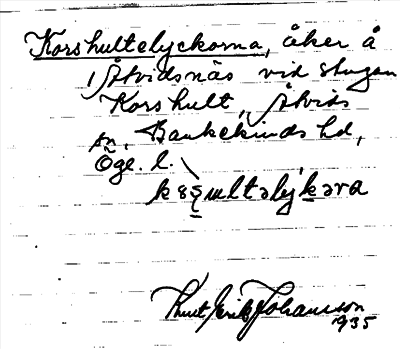 Korshultelyckorna, åker å
Åtvidsnäs vid stugan
Korshult, Åtvids
sn, Bankekinds hd,
Ögl. l.
Knut Erik Johansson
1935